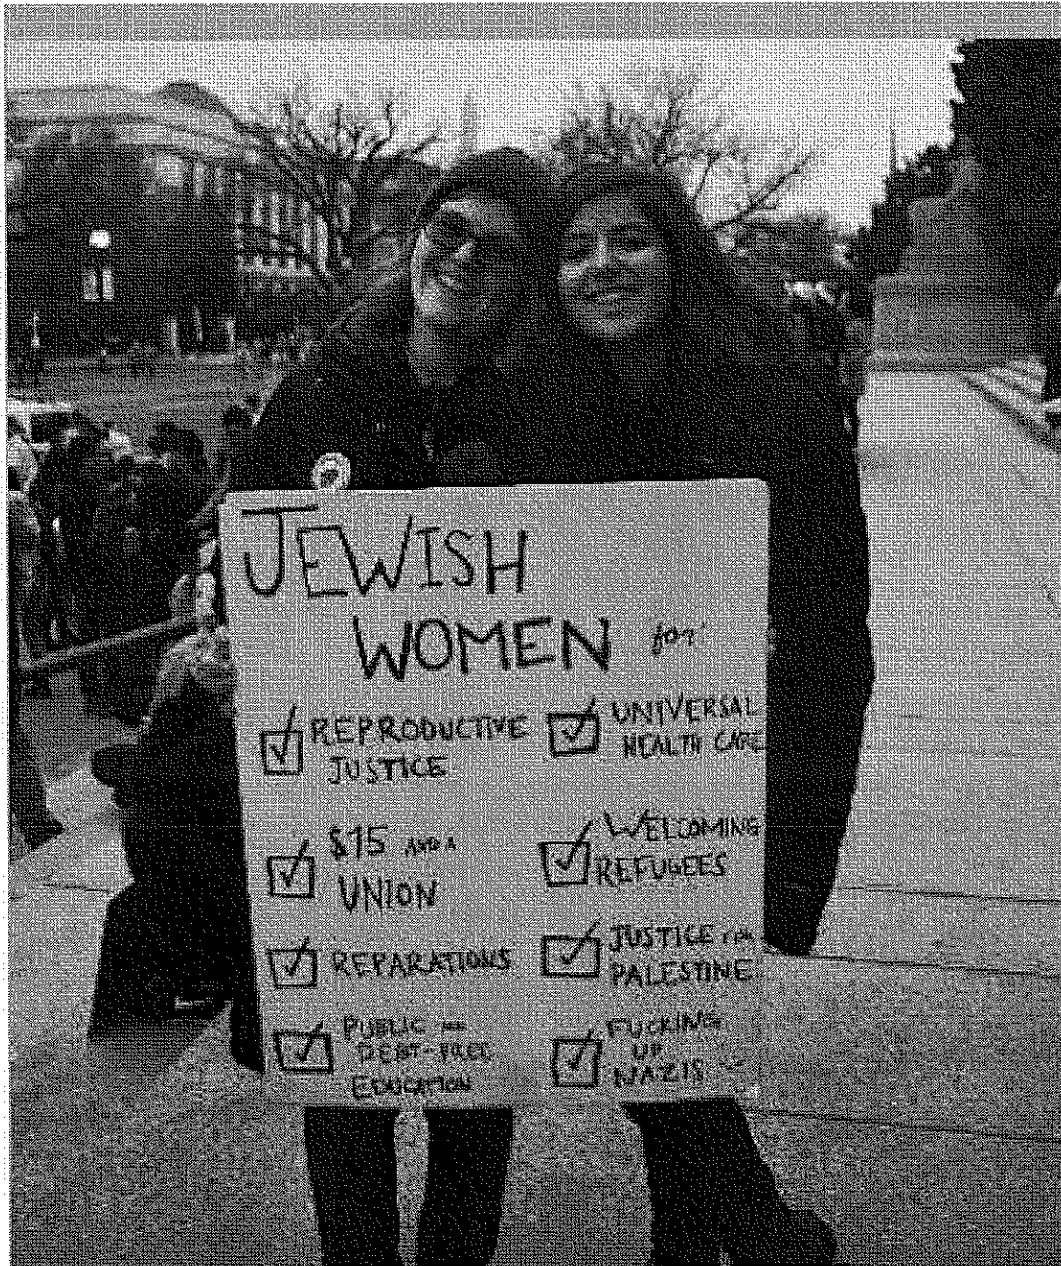 JEWISH
WOMEN for
REPRODUCTIVE
JUSTICE
$15 AND A
UNION
REPARATIONS
PUBLIC
DEBT-FREE
EDUCATION
UNIVERSAL
HEALTH CARE
WELCOMING
REFUGEES
JUSTICE FOR
PALESTINE
FUCKING
UP
NAZIS